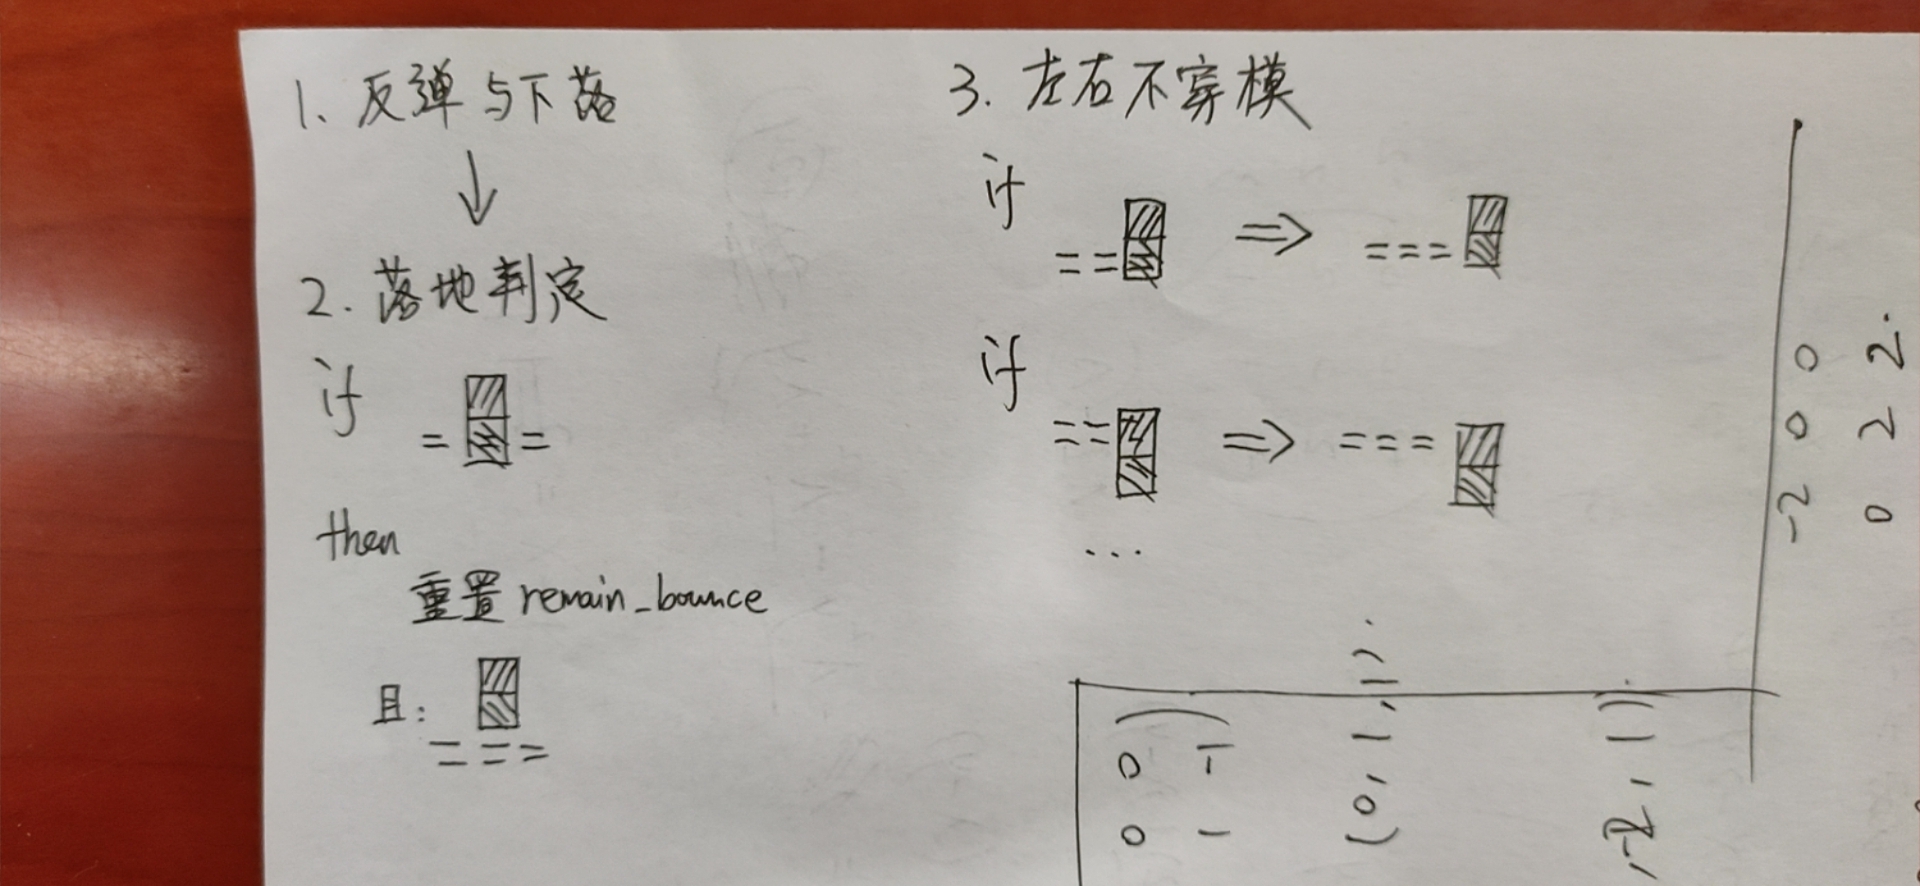 1. 反弹与下落
↓
2. 落地判定
if
= =
then
重置 remain_bounce
且:
= = =
3. 左右不穿模
if
= = ⇒ = = =
if
= = ⇒ = = =
...
0 0 -2
2. 2 0
0 0
1 -1
(0, 1, 1).